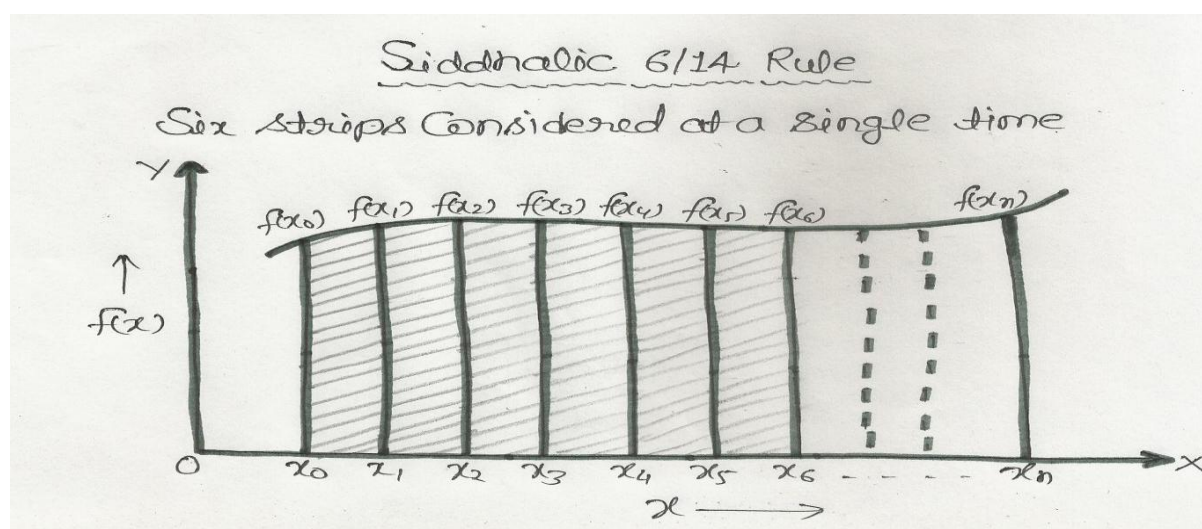 Siddhalic 6/14 Rule
Six strips Considered at a single time
Y
f(x0) f(x1) f(x2) f(x3) f(x4) f(x5) f(x6) f(xn)
↑
f(x)
O x0 x1 x2 x3 x4 x5 x6 - - - - xn X
x →